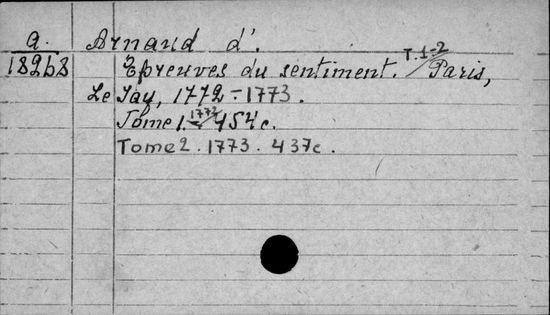 a. Arnaud d'.
18268 Epreuves du sentiment. T. 1-2 Paris,
Le Jay, 1772-1773.
Tome 1. 1772 454 c.
Tome 2. 1773. 437 c.